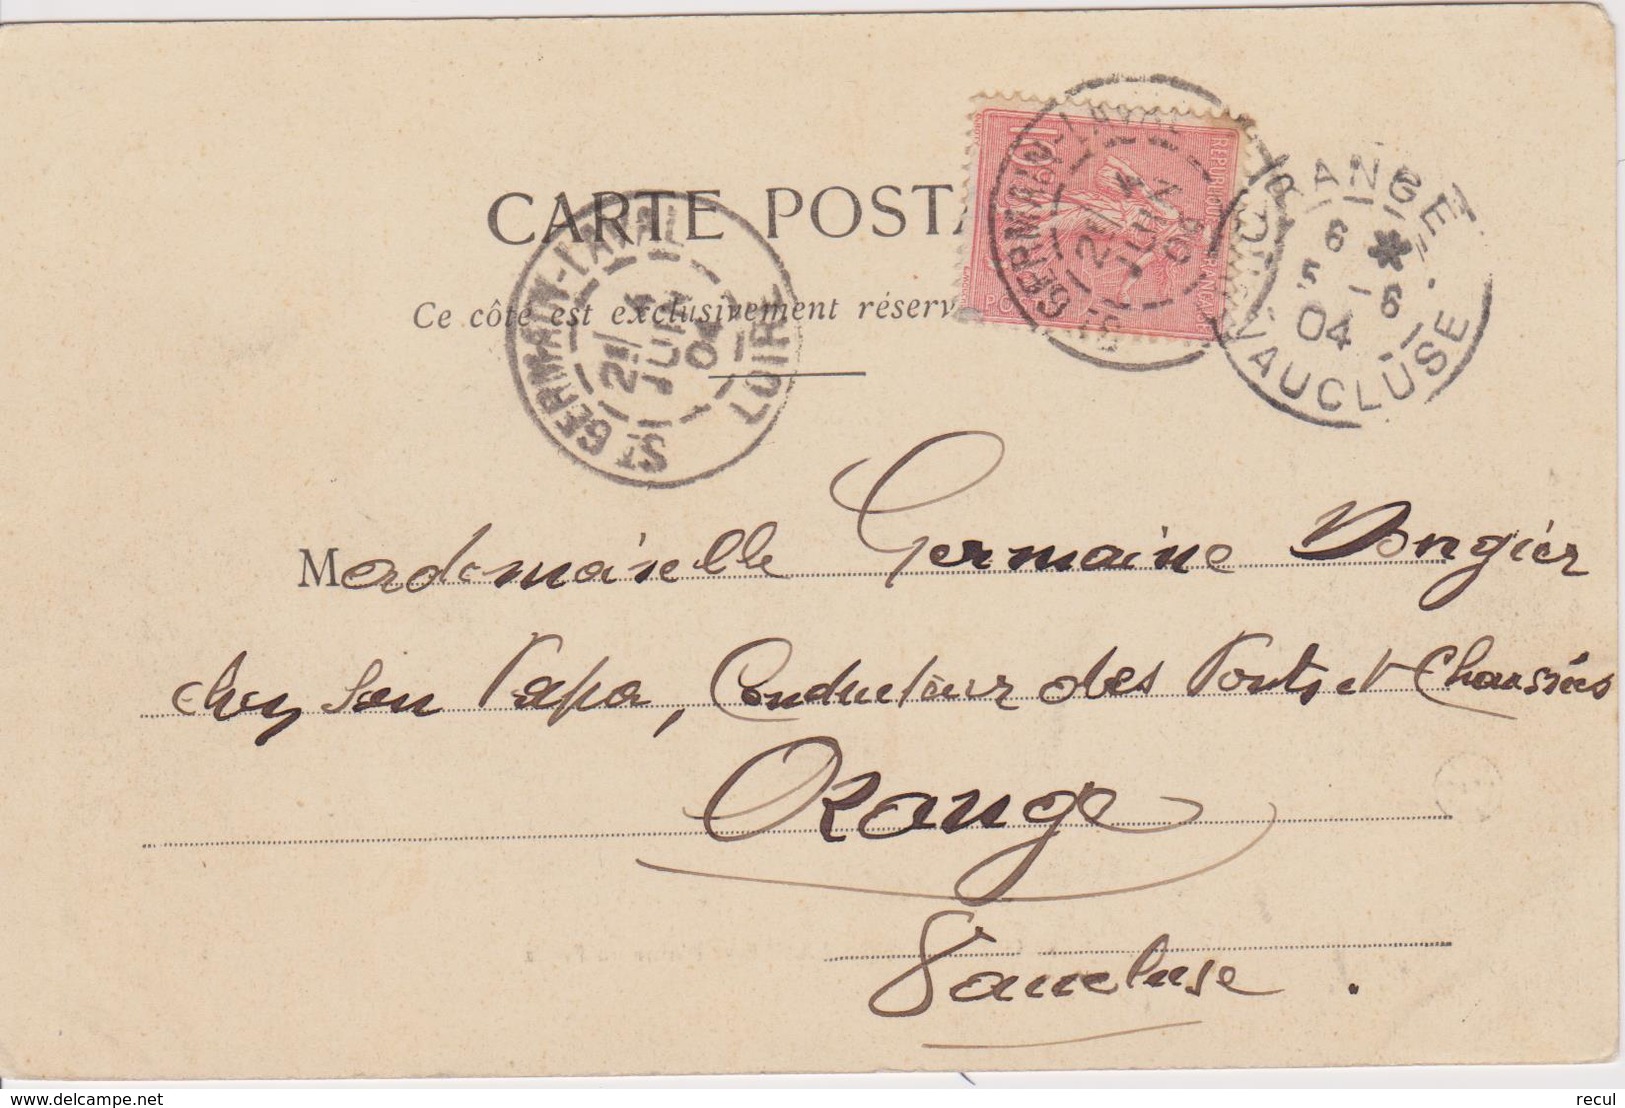 CARTE POSTA
Ce côté est exclusivement réserv
10
REPUBLIQUE FRANÇAISE
POSTES
ST GERMAIN-LAVAL
LOIRE
2E/ 4
JUIN
04
ST GERMAIN-LAVAL
LOIRE
2E/ 4
JUIN
04
ORANGE
6 *
5 -6
04
VAUCLUSE
Mademoiselle Germaine Vongier
chez son Papa, Conducteur des Ponts et Chaussées
Orange
Vaucluse.
www.delcampe.net
recul